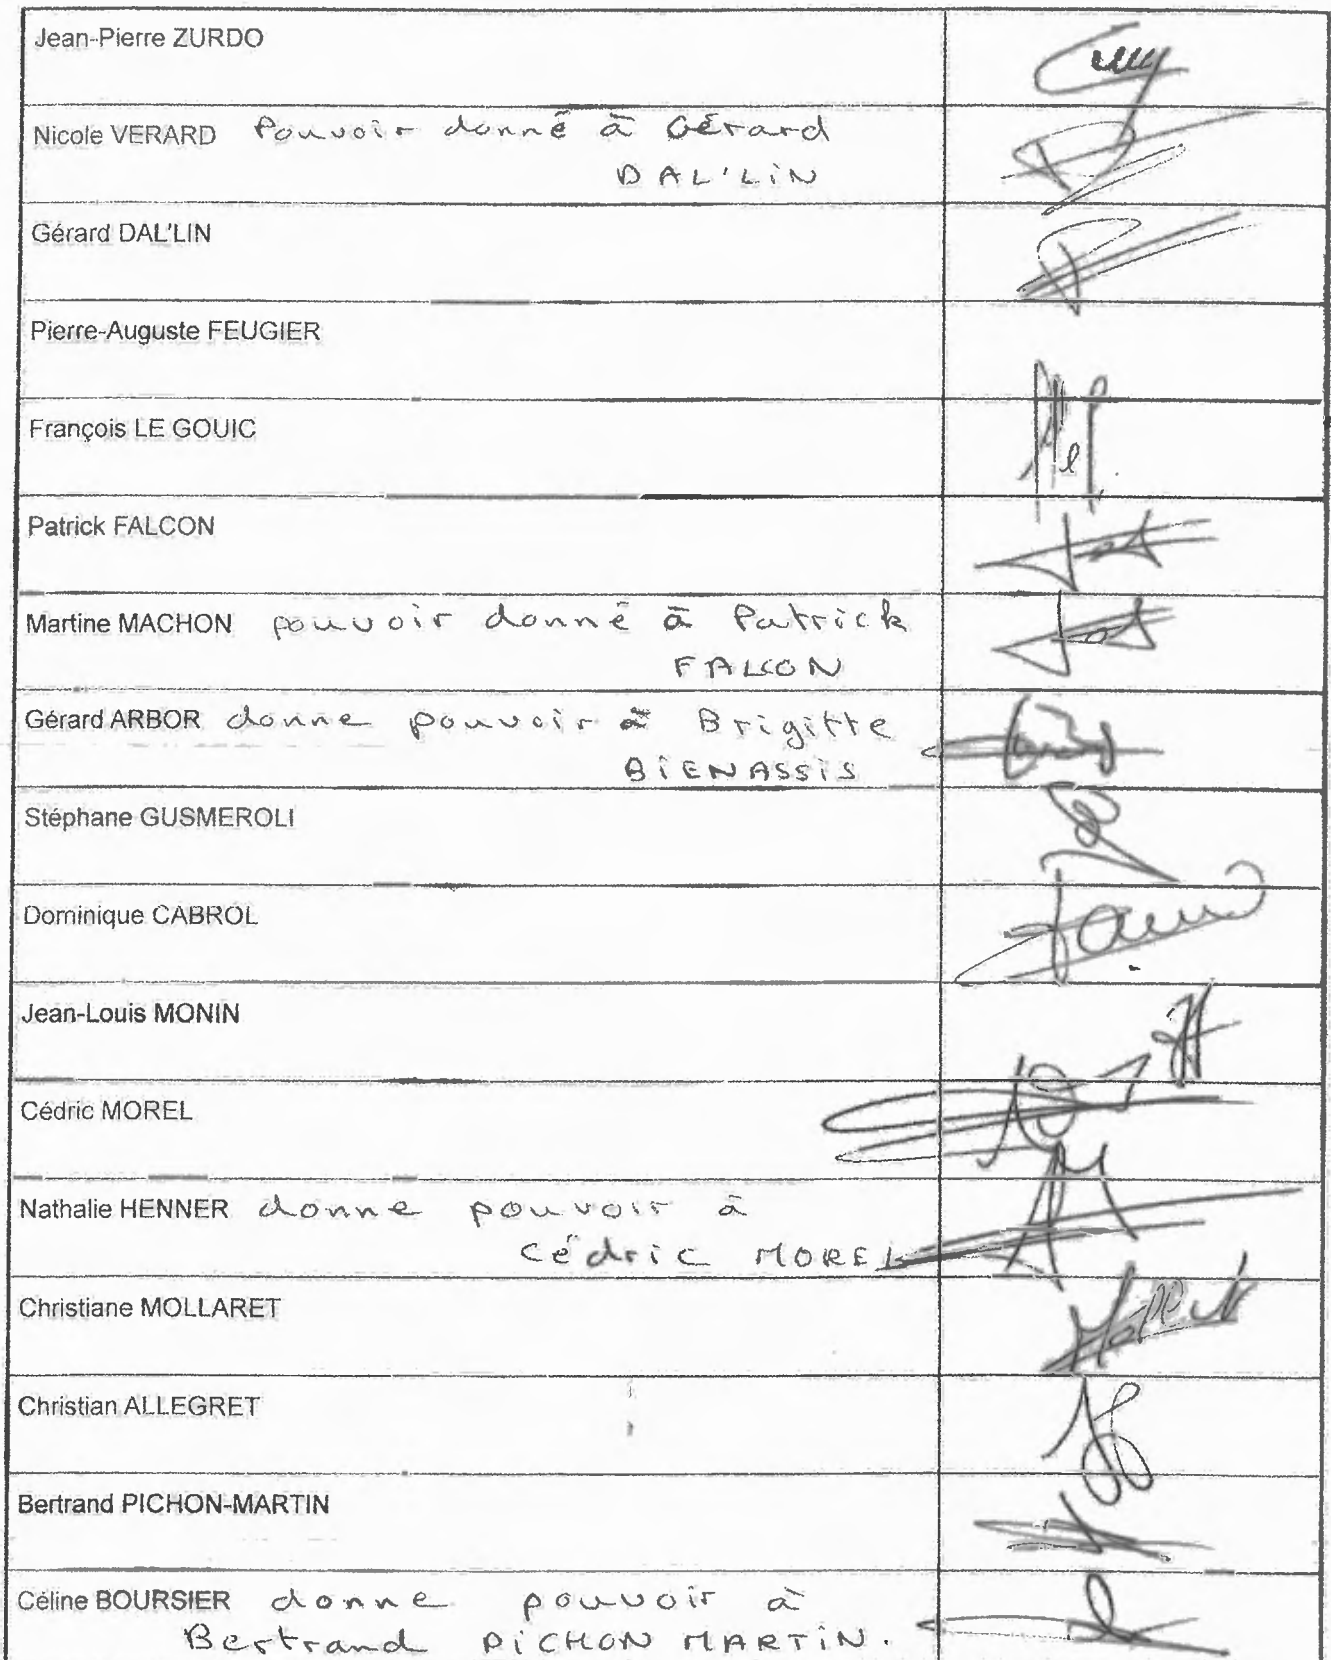 Jean-Pierre ZURDO
Nicole VERARD Pouvoir donné à Gérard
DAL'LIN
Gérard DAL'LIN
Pierre-Auguste FEUGIER
François LE GOUIC
Patrick FALCON
Martine MACHON pouvoir donné à Patrick
FALCON
Gérard ARBOR donne pouvoir à Brigitte
BIENASSIS
Stéphane GUSMEROLI
Dominique CABROL
Jean-Louis MONIN
Cédric MOREL
Nathalie HENNER donne pouvoir à
Cédric MOREL
Christiane MOLLARET
Christian ALLEGRET
Bertrand PICHON-MARTIN
Céline BOURSIER donne pouvoir à
Bertrand PICHON MARTIN.